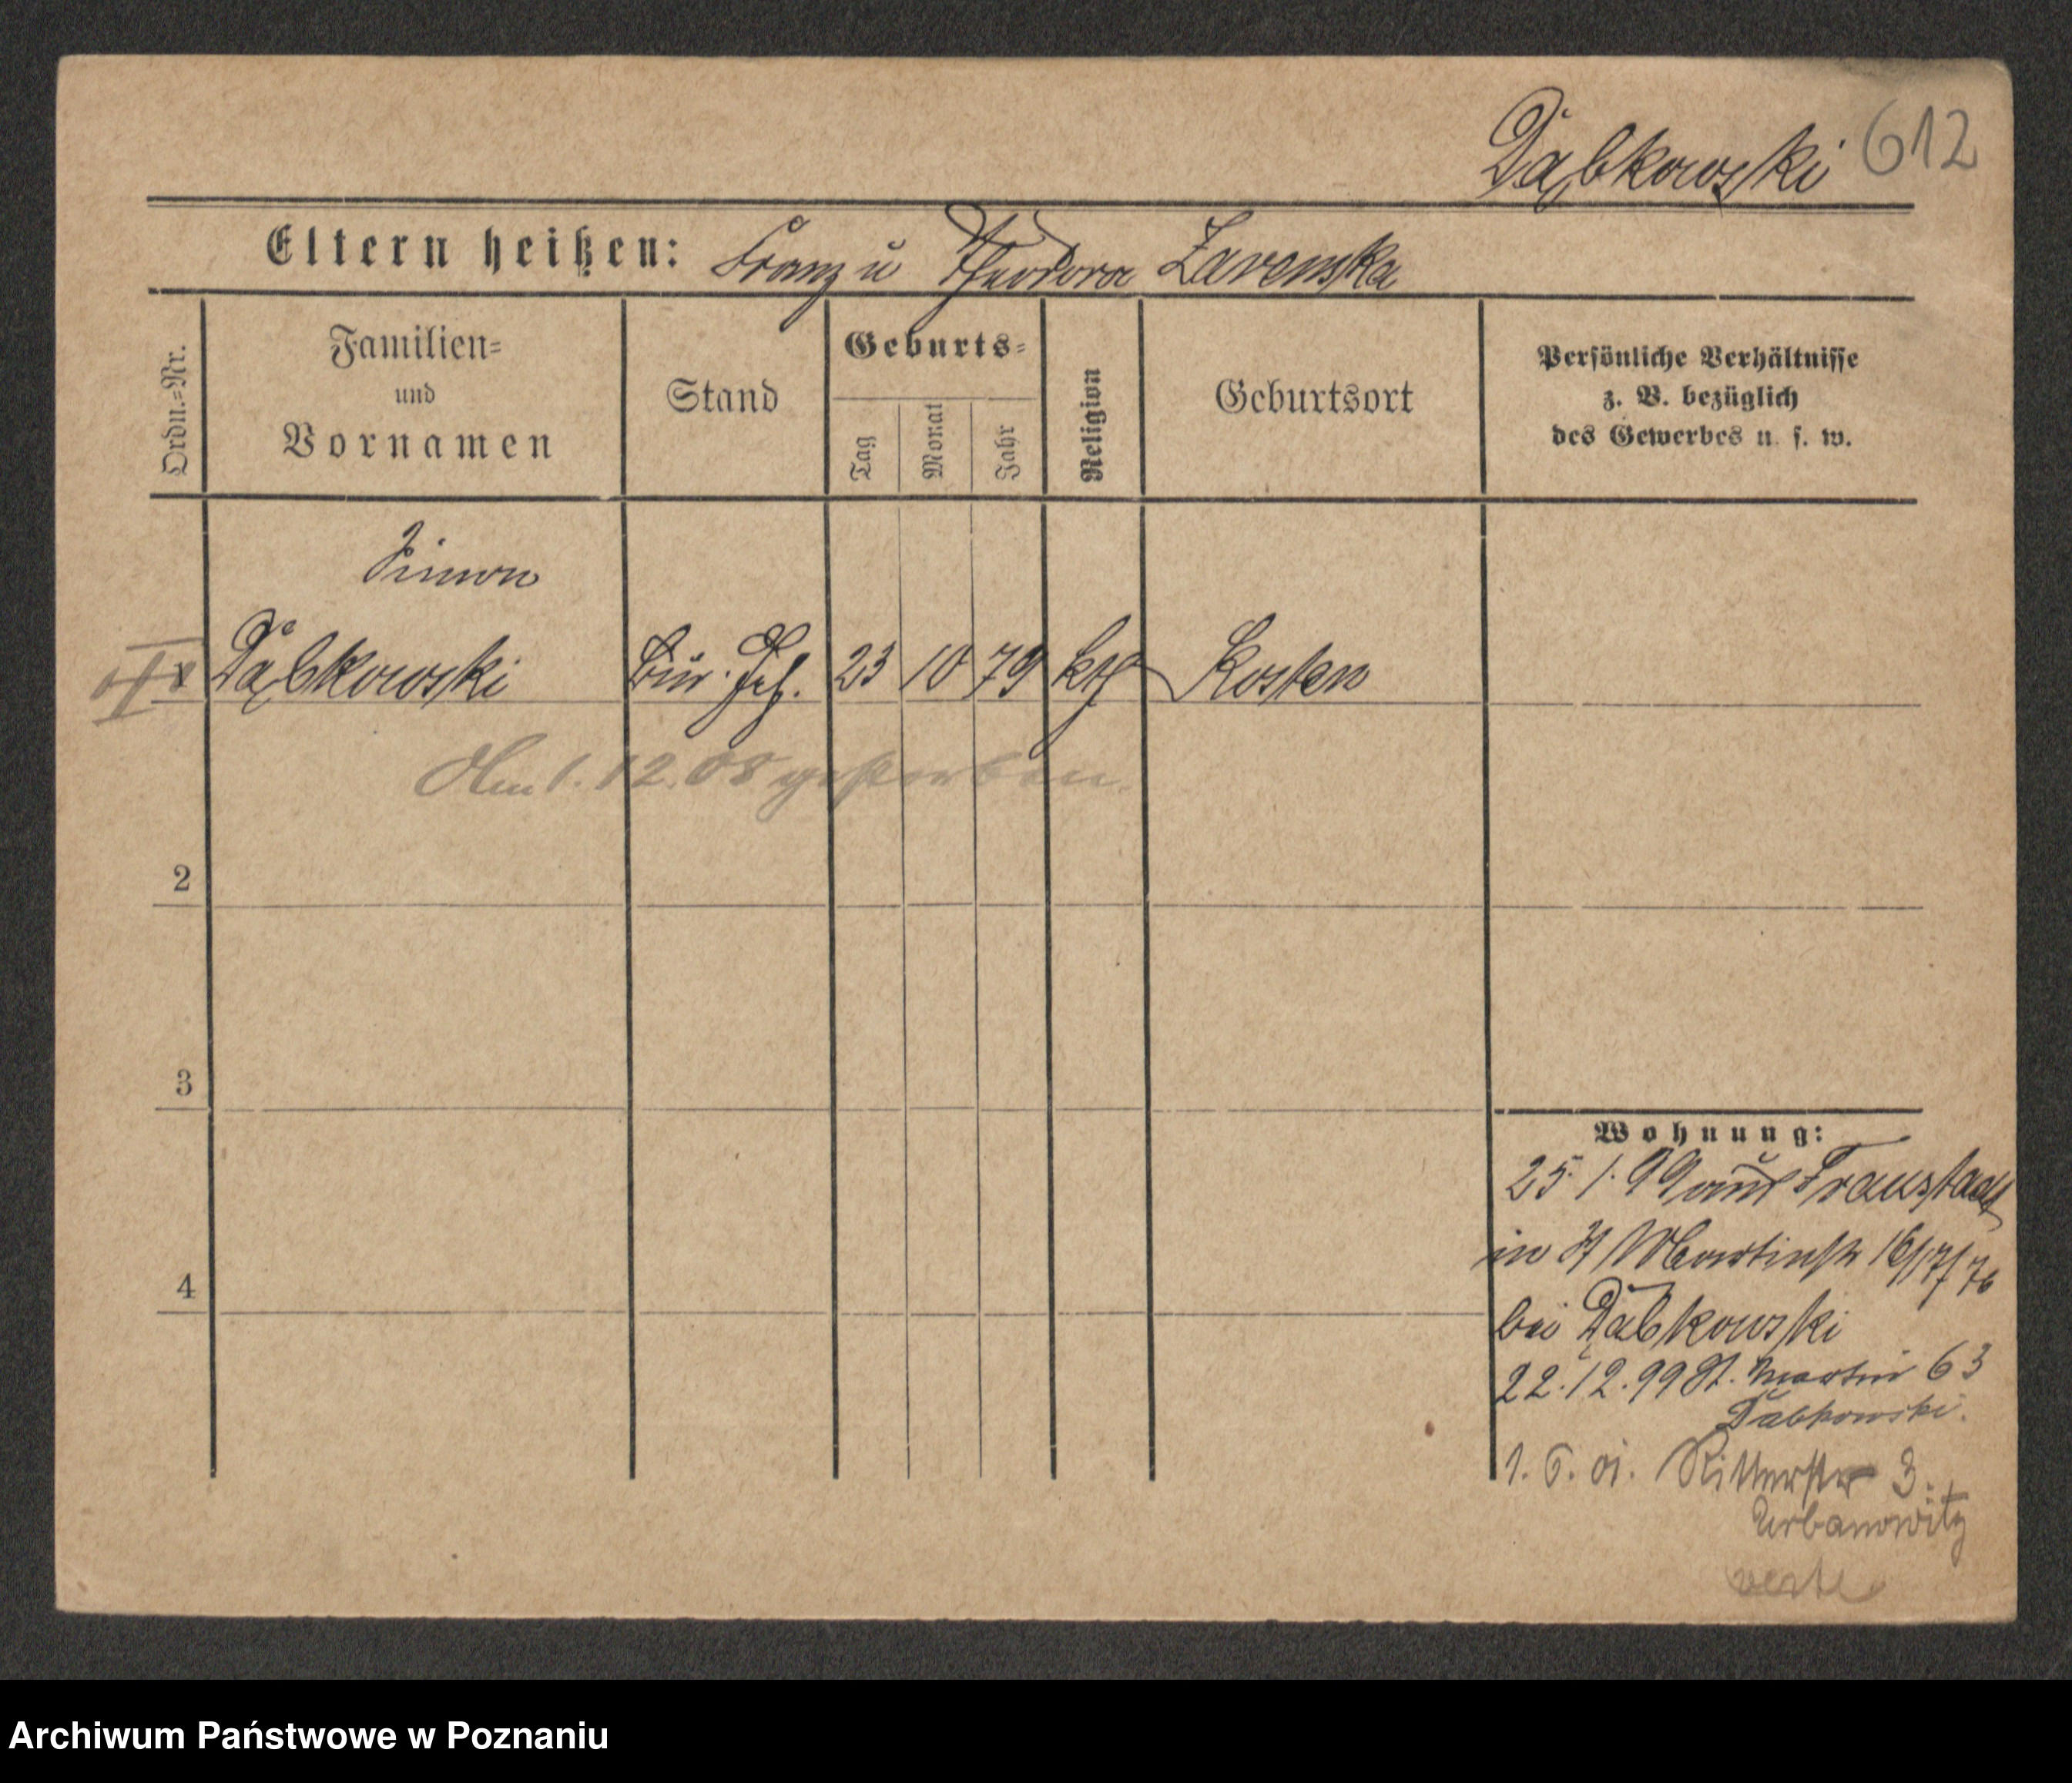 Dąbkowski 612
Eltern heißen: Franz u Theodora Zarenska
Ordn.-Nr.
Familien-
und
Vornamen
Stand
Geburts-
Tag
Monat
Jahr
Religion
Geburtsort
Persönliche Verhältnisse
z. B. bezüglich
des Gewerbes u. s. w.
Simon
Dąbkowski Bür. Geh. 23 10 79 kth Kosten
Am 1.12.08 gestorben
2
3
4
Wohnung:
25.1.99 aus Fraustadt
in St Martinstr 16/17/76
bei Dąbkowski
22.12.99 St. Martin 63
Dąbkowski.
1. 6. 01. Ritterstr 3.
Urbanowitz
verte
Archiwum Państwowe w Poznaniu